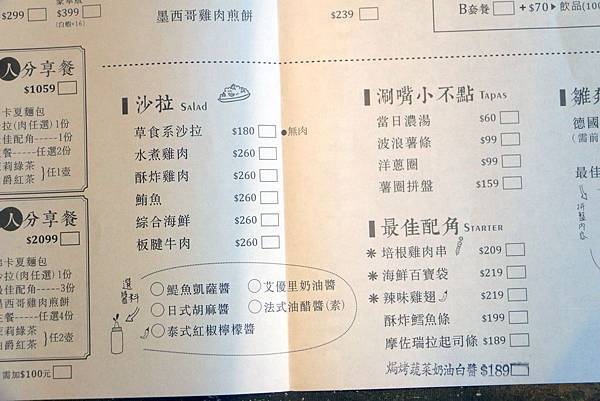 $299
$399
(白蝦×16)
墨西哥雞肉煎餅
$239
B套餐
+ $70▸飲品(100
人分享餐
$1059
卡夏麵包
沙拉(肉任選)1份
佳配角-----1份
餐-----任選2份
茉莉綠茶
伯爵紅茶
}任1壺
人分享餐
$2099
卡夏麵包
沙拉(肉任選)1份
最佳配角-----3份
墨西哥雞肉煎餅
餐-----任選4份
茉莉綠茶
伯爵紅茶
}任2壺
需加$100元
沙拉 Salad
草食系沙拉 $180 ●無肉
水煮雞肉 $260
酥炸雞肉 $260
鮪魚 $260
綜合海鮮 $260
板腱牛肉 $260
選醬料
鯷魚凱薩醬
艾優里奶油醬
日式胡麻醬
法式油醋醬(素)
泰式紅椒檸檬醬
涮嘴小不點 TAPAS
當日濃湯 $60
波浪薯條 $99
洋蔥圈 $99
薯圈拼盤 $159
最佳配角 STARTER
＊培根雞肉串 $209
＊海鮮百寶袋 $219
＊辣味雞翅 $219
酥炸鱈魚條 $199
摩佐瑞拉起司條 $189
焗烤蔬菜奶油白醬 $189
德國
(需前
最佳
拼盤內容